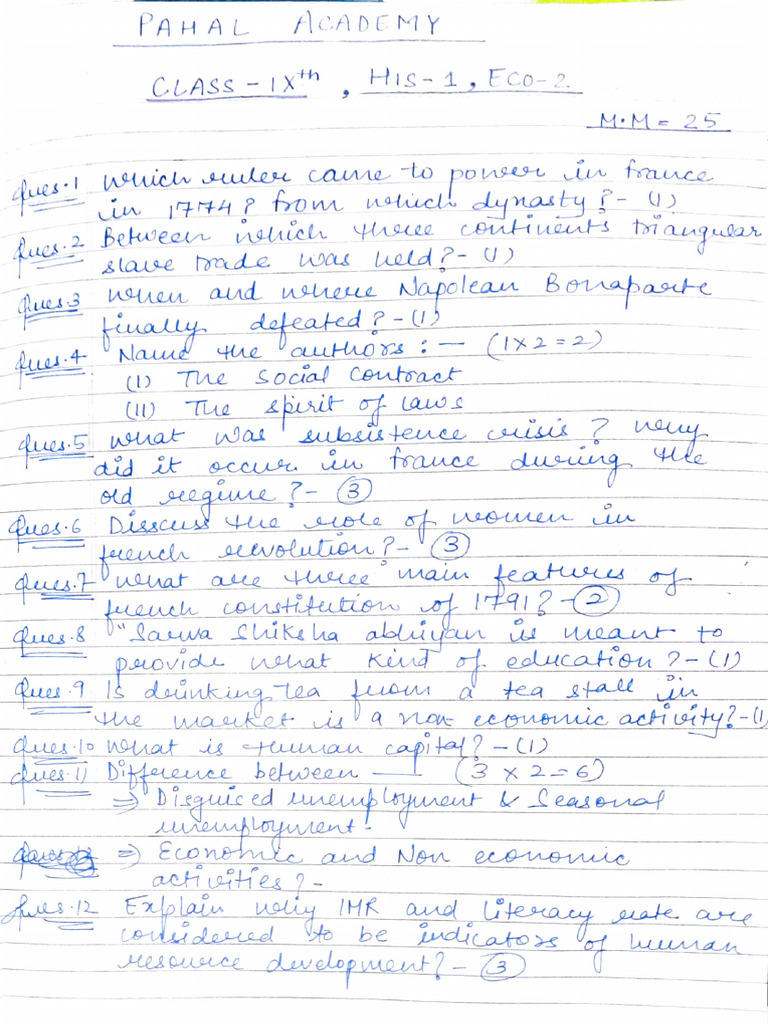 PAHAL ACADEMY
CLASS - IXth, HIS-1, ECO-2
M.M = 25
Ques.1 Which ruler came to power in france
in 1774? from which dynasty? - (1)
Ques.2 Between which three continents triangular
slave trade was held? - (1)
Ques.3 When and where Napolean Bonaparte
finally defeated? - (1)
Ques.4 Name the authors : — (1x2=2)
(I) The Social Contract
(II) The spirit of laws
Ques.5 What was subsistence crisis ? Why
did it occur in france during the
old regime? - (3)
Ques.6 Disscuss the role of women in
french revolution? - (3)
Ques.7 What are three main features of
french constitution of 1791? - (2)
Ques.8 "Sarva Shiksha abhiyan is meant to
provide what kind of education ? - (1)
Ques.9 Is drinking tea from a tea stall in
the market is a non economic activity? - (1)
Ques.10 What is Human capital? - (1)
Ques.11 Difference between — (3 x 2 = 6)
⇒ Disguiced unemployment & Seasonal
unemployment.
⇒ Economic and Non economic
activities? -
Ques.12 Explain why IMR and Literacy rate are
considered to be indicators of human
resource development? - (3)